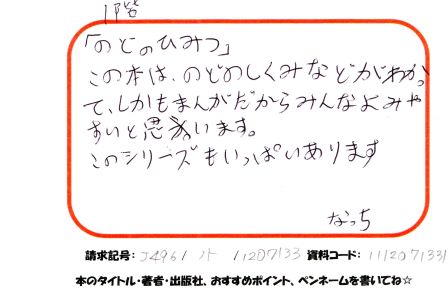 1階
「のどのひみつ」
この本は、のどのしくみなどがわかっ
て、しかもまんがだからみんなよみや
すいと思います。
このシリーズもいっぱいあります
なっち
請求記号: J496/ /11207133 資料コード: 112071331
本のタイトル・著者・出版社、おすすめポイント、ペンネームを書いてね☆